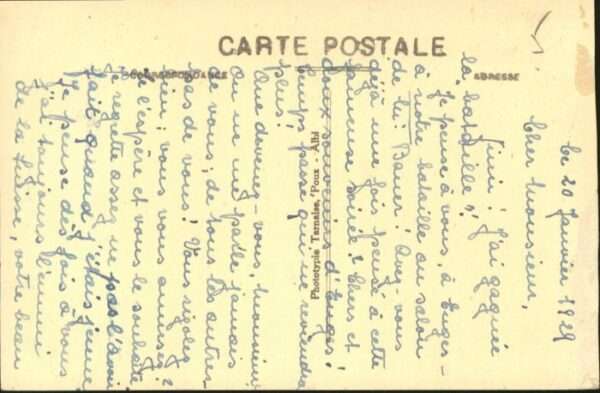 CARTE POSTALE
CORRESPONDANCE
ADRESSE
Phototypie Tarnaise, Poux - Albi
Le 20 Janvier 1929
Cher Monsieur,
Fini! J'ai gagnée
la bataille!
Je pense à vous, à Euzes-
à notre bataille au salon
de lui Bauer! Avez-vous
déjà une fois pensé à cette
fameuse soirée? Chers et
doux souvenirs d'Euzes!
temps passé qui ne reviendra
plus!
Que devenez-vous, Monsieur
on ne me parle jamais
de vous; de tous les autres
pas de vous! Vous rigolez
bien; vous vous amusez?
Je l'espère et vous le souhaite
Je regrette assez ne pas l'avoir
fait quand j'étais jeune,
Je pense des fois à vous
J'ai toujours l'ennui
de la Suisse, votre beau